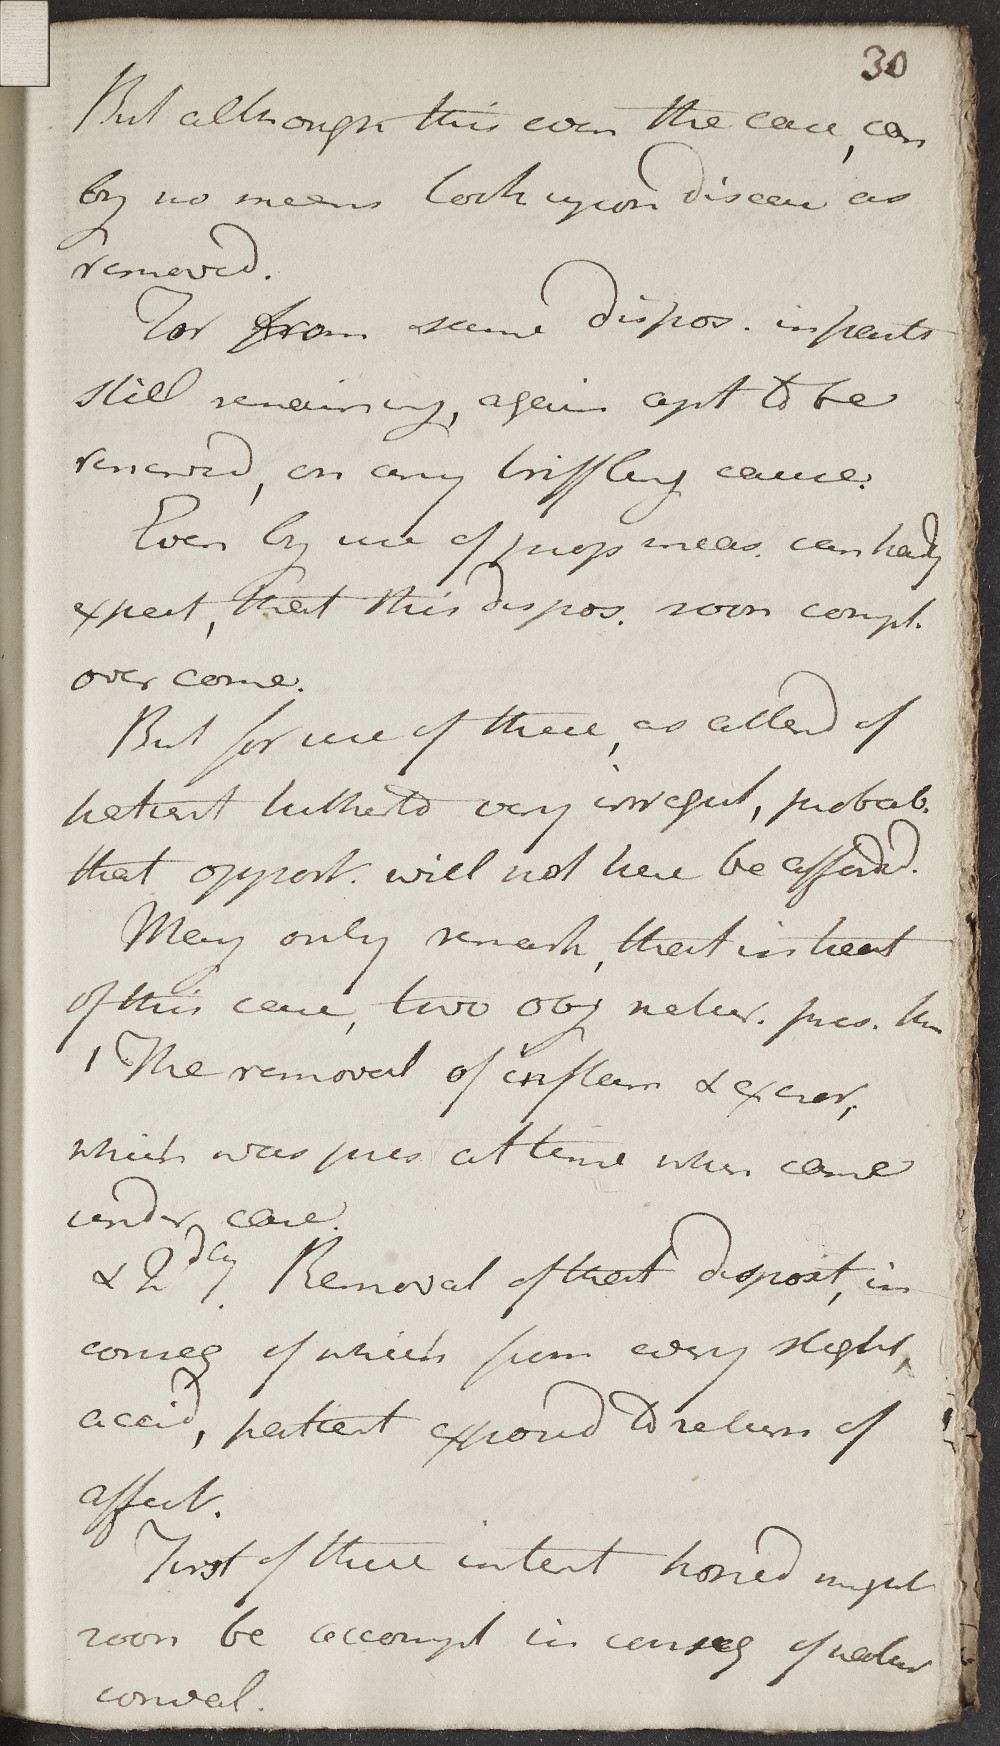 30
But although this even the case, can
by no means look upon disease as
removed.
For from same dispos. in parts
still remaining, again apt to be
renewed, on any triffling cause.
Even by use of prop meas. can hardly
expect, that this dispos. soon compl.
over come.
But for use of these, as attend of
patient hitherto very irregul, probab.
that opport. will not here be afford.
May only remark, that in treat
of this case, two obj natur. pres. 
1 The removal of inflam &
which was pres at time when came
under care.
& 2dly. Removal of that disposit, in
conseq of which from every slight,
accid, patient exposed to return of
affect.
First of these intent hoped might
soon be accompl in conseq of natur
conval.